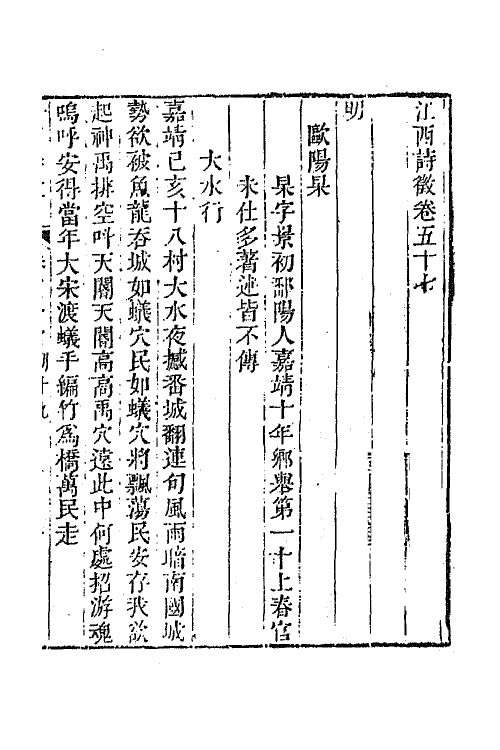 江西詩徵卷五十七
明
歐陽杲
杲字景初鄱陽人嘉靖十年鄉舉第一十上春官
未仕多著述皆不傳
大水行
嘉靖己亥十八村大水夜撼番城翻連旬風雨暗南國城
勢欲破魚龍吞城如蟻穴民如蟻穴將飄蕩民安存我欲
起神禹排空叫天閽天閽高高禹穴遠此中何處招游魂
嗚呼安得當年大宋渡蟻手編竹爲橋萬民走